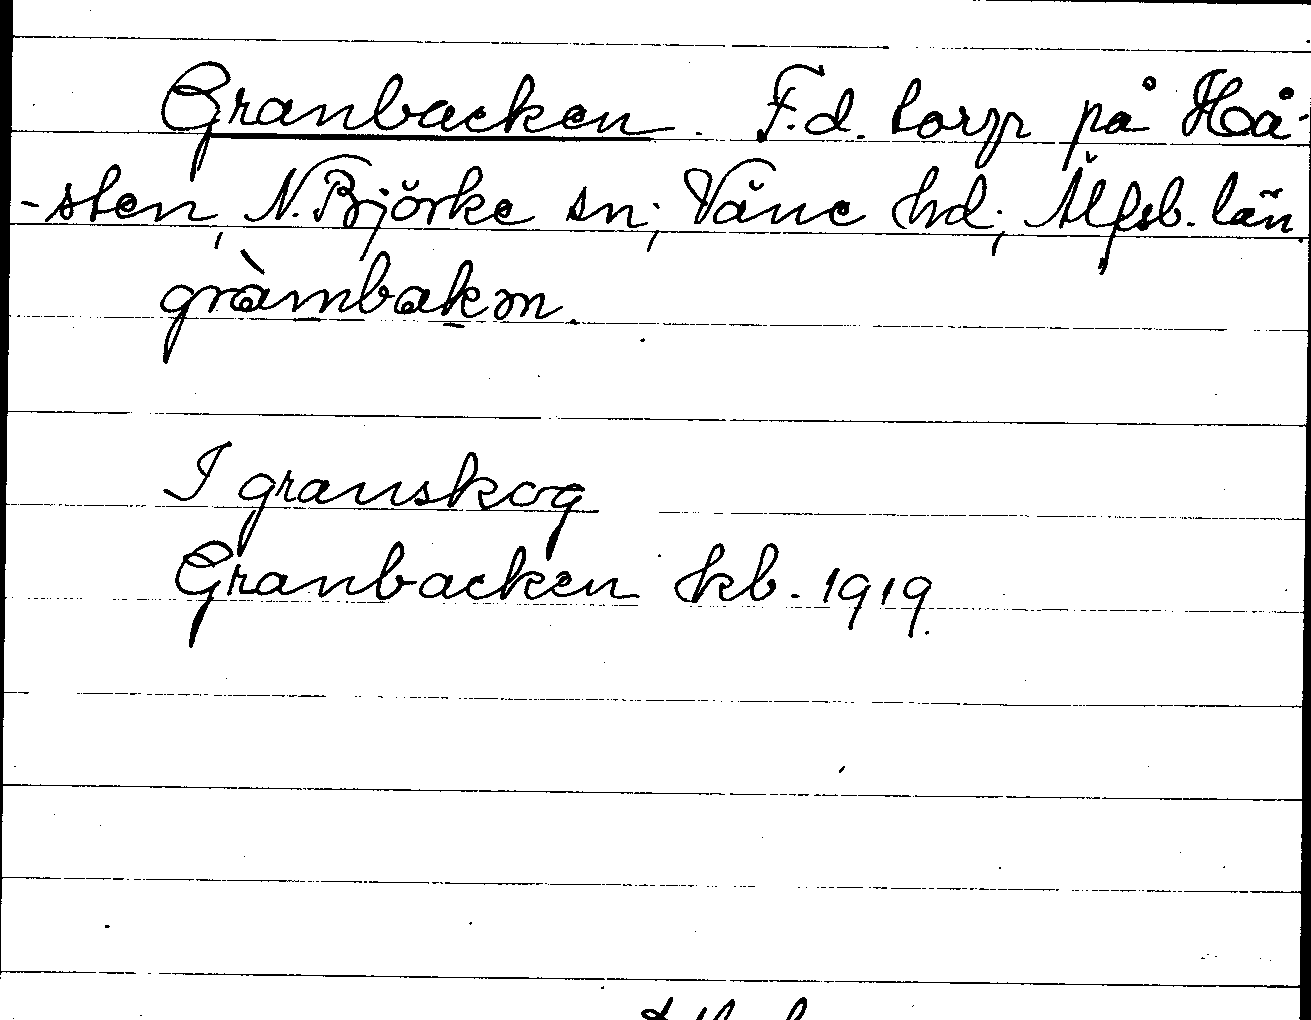 Granbacken. F.d. torp på Hå-
-sten, N. Björke sn; Väne hd; Älfsb. län.
gràmbakən.
I granskog
Granbacken kb. 1919.